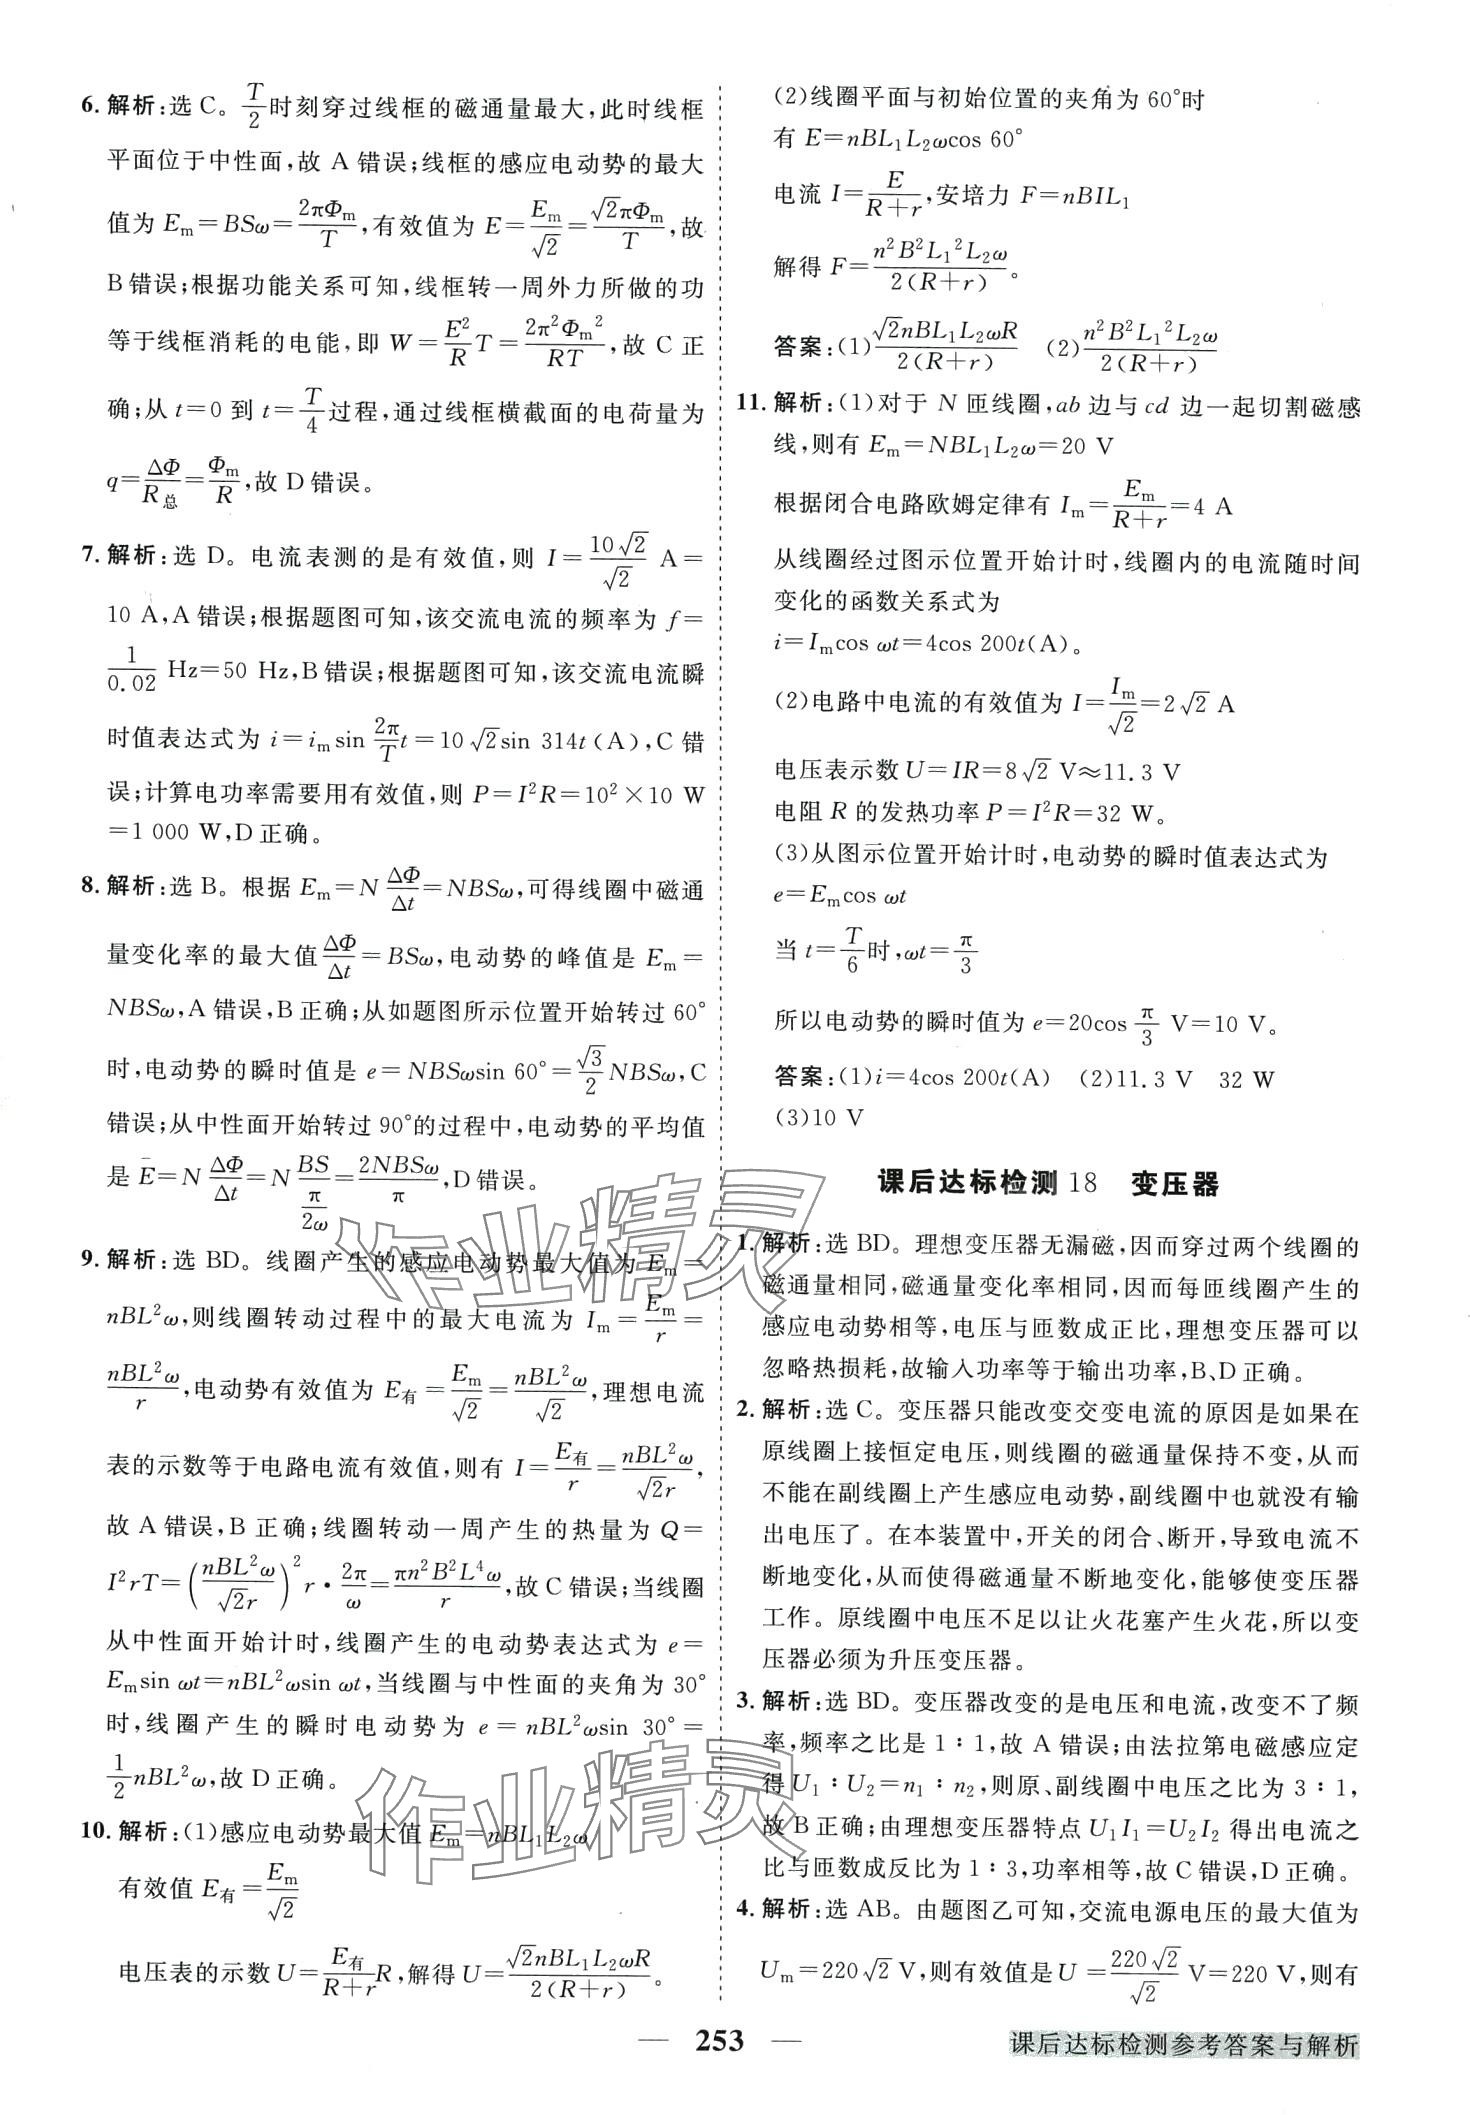 6. 解析:选 C。T/2时刻穿过线框的磁通量最大,此时线框
平面位于中性面,故 A 错误;线框的感应电动势的最大
值为 Eₘ=BSω=2πΦₘ/T,有效值为 E=Eₘ/√2=√2πΦₘ/T,故
B 错误;根据功能关系可知,线框转一周外力所做的功
等于线框消耗的电能,即 W=E²/R T=2π²Φₘ²/RT,故 C 正
确;从 t=0 到 t=T/4过程,通过线框横截面的电荷量为
q=ΔΦ/R总=Φₘ/R,故 D 错误。
7. 解析:选 D。电流表测的是有效值,则 I=10√2/√2 A=
10 A,A 错误;根据题图可知,该交流电流的频率为 f=
1/0.02 Hz=50 Hz,B 错误;根据题图可知,该交流电流瞬
时值表达式为 i=iₘsin 2π/T t=10√2sin 314t(A),C 错
误;计算电功率需要用有效值,则 P=I²R=10²×10 W
=1 000 W,D 正确。
8. 解析:选 B。根据 Eₘ=N ΔΦ/Δt=NBSω,可得线圈中磁通
量变化率的最大值ΔΦ/Δt=BSω,电动势的峰值是 Eₘ=
NBSω,A 错误,B 正确;从如题图所示位置开始转过 60°
时,电动势的瞬时值是 e=NBSωsin 60°=√3/2 NBSω,C
错误;从中性面开始转过 90°的过程中,电动势的平均值
是 E̅=N ΔΦ/Δt=N BS/(π/2ω)=2NBSω/π,D 错误。
9. 解析:选 BD。线圈产生的感应电动势最大值为 Eₘ=
nBL²ω,则线圈转动过程中的最大电流为 Iₘ=Eₘ/r=
nBL²ω/r,电动势有效值为 E有=Eₘ/√2=nBL²ω/√2,理想电流
表的示数等于电路电流有效值,则有 I=E有/r=nBL²ω/√2r,
故 A 错误,B 正确;线圈转动一周产生的热量为 Q=
I²rT=(nBL²ω/√2r)²r·2π/ω=πn²B²L⁴ω/r,故 C 错误;当线圈
从中性面开始计时,线圈产生的电动势表达式为 e=
Eₘsin ωt=nBL²ωsin ωt,当线圈与中性面的夹角为 30°
时,线圈产生的瞬时电动势为 e=nBL²ωsin 30°=
1/2 nBL²ω,故 D 正确。
10. 解析:(1)感应电动势最大值 Eₘ=nBL₁L₂ω
有效值 E有=Eₘ/√2
电压表的示数 U=E有/(R+r) R,解得 U=√2nBL₁L₂ωR/2(R+r)。
(2)线圈平面与初始位置的夹角为 60°时
有 E=nBL₁L₂ωcos 60°
电流 I=E/(R+r),安培力 F=nBIL₁
解得 F=n²B²L₁²L₂ω/2(R+r)。
答案:(1)√2nBL₁L₂ωR/2(R+r) (2)n²B²L₁²L₂ω/2(R+r)
11. 解析:(1)对于 N 匝线圈,ab 边与 cd 边一起切割磁感
线,则有 Eₘ=NBL₁L₂ω=20 V
根据闭合电路欧姆定律有 Iₘ=Eₘ/(R+r)=4 A
从线圈经过图示位置开始计时,线圈内的电流随时间
变化的函数关系式为
i=Iₘcos ωt=4cos 200t(A)。
(2)电路中电流的有效值为 I=Iₘ/√2=2√2 A
电压表示数 U=IR=8√2 V≈11.3 V
电阻 R 的发热功率 P=I²R=32 W。
(3)从图示位置开始计时,电动势的瞬时值表达式为
e=Eₘcos ωt
当 t=T/6时,ωt=π/3
所以电动势的瞬时值为 e=20cos π/3 V=10 V。
答案:(1)i=4cos 200t(A) (2)11.3 V 32 W
(3)10 V
课后达标检测 18 变压器
1. 解析:选 BD。理想变压器无漏磁,因而穿过两个线圈的
磁通量相同,磁通量变化率相同,因而每匝线圈产生的
感应电动势相等,电压与匝数成正比,理想变压器可以
忽略热损耗,故输入功率等于输出功率,B、D 正确。
2. 解析:选 C。变压器只能改变交变电流的原因是如果在
原线圈上接恒定电压,则线圈的磁通量保持不变,从而
不能在副线圈上产生感应电动势,副线圈中也就没有输
出电压了。在本装置中,开关的闭合、断开,导致电流不
断地变化,从而使得磁通量不断地变化,能够使变压器
工作。原线圈中电压不足以让火花塞产生火花,所以变
压器必须为升压变压器。
3. 解析:选 BD。变压器改变的是电压和电流,改变不了频
率,频率之比是 1∶1,故 A 错误;由法拉第电磁感应定
得 U₁∶U₂=n₁∶n₂,则原、副线圈中电压之比为 3∶1,
故 B 正确;由理想变压器特点 U₁I₁=U₂I₂ 得出电流之
比与匝数成反比为 1∶3,功率相等,故 C 错误,D 正确。
4. 解析:选 AB。由题图乙可知,交流电源电压的最大值为
Uₘ=220√2 V,则有效值是 U=220√2/√2 V=220 V,则有
作业精灵
作业精灵
— 253 —
课后达标检测参考答案与解析